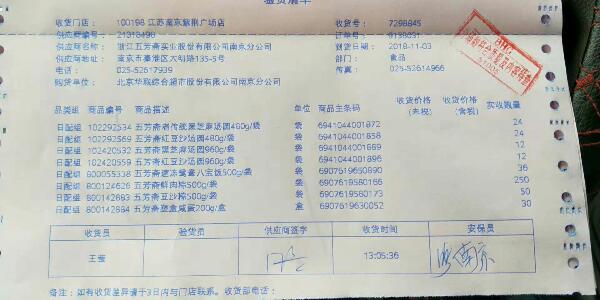 验货清单
收货门店： 100198 江苏南京紫荆广场店 收货号： 7298845
供应商编号： 21318490 订单号： 8138031
供应商名称： 浙江五芳斋实业股份有限公司南京分公司 到货日期： 2018-11-03
供应商地址： 南京市秦淮区大明路135-5号 部门： 食品
电话： 025-52617939 传真： 025-52614966
购货单位： 北京华联综合超市股份有限公司南京分公司
品类组 商品编号 商品描述 单位 商品主条码 收货价格(未税) 收货价格(含税) 实收数量
日配组 102292534 五芳斋传统黑芝麻汤圆480g/袋 袋 6941044001872 24
日配组 102292569 五芳斋红豆沙汤圆480g/袋 袋 6941044001858 24
日配组 102420532 五芳斋黑芝麻汤圆960g/袋 袋 6941044001889 12
日配组 102420559 五芳斋红豆沙汤圆960g/袋 袋 6941044001896 12
日配组 800055338 五芳斋速冻鸳鸯八宝饭500g/袋 袋 6907619650890 36
日配组 800124626 五芳斋鲜肉粽500g/袋 袋 6907619580166 250
日配组 800142883 五芳斋豆沙粽500g/袋 袋 6907619580173 50
日配组 800142884 五芳斋塑盒咸蛋200g/盒 盒 6907619630052 30
收货员 验货员 供应商签字 收货时间 安保员
王莹 13:05:36
备注：如有收货差异请于3日内与门店联系。收货部电话：